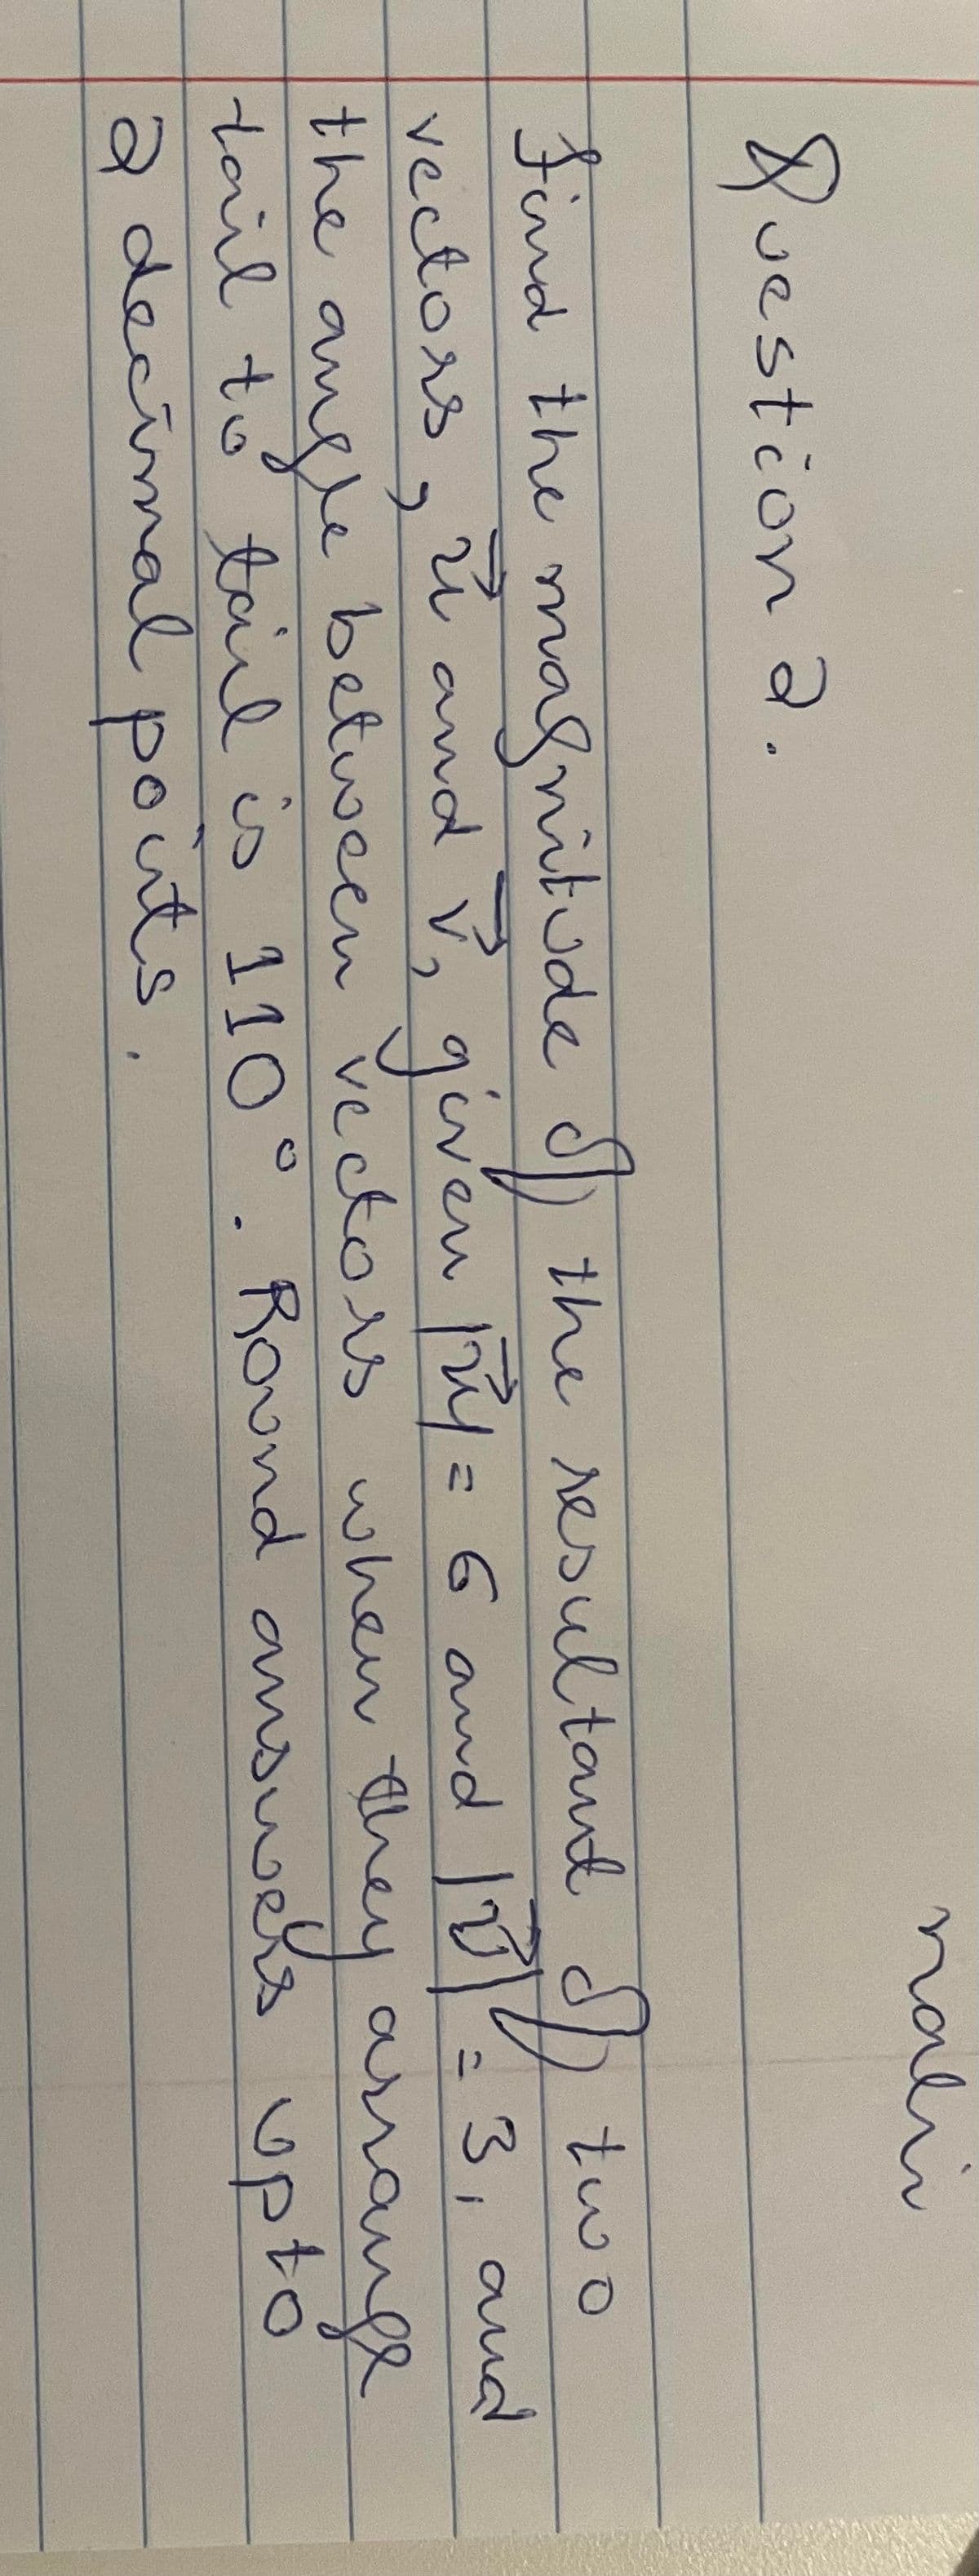 nalin
Question 2.
find the magnitude of the resultant of two
vectors, u⃗ and v⃗, given |u⃗| = 6 and |v⃗| = 3, and
the angle between vectors when they arrange
tail to tail is 110°. Round answers upto
2 decimal points.